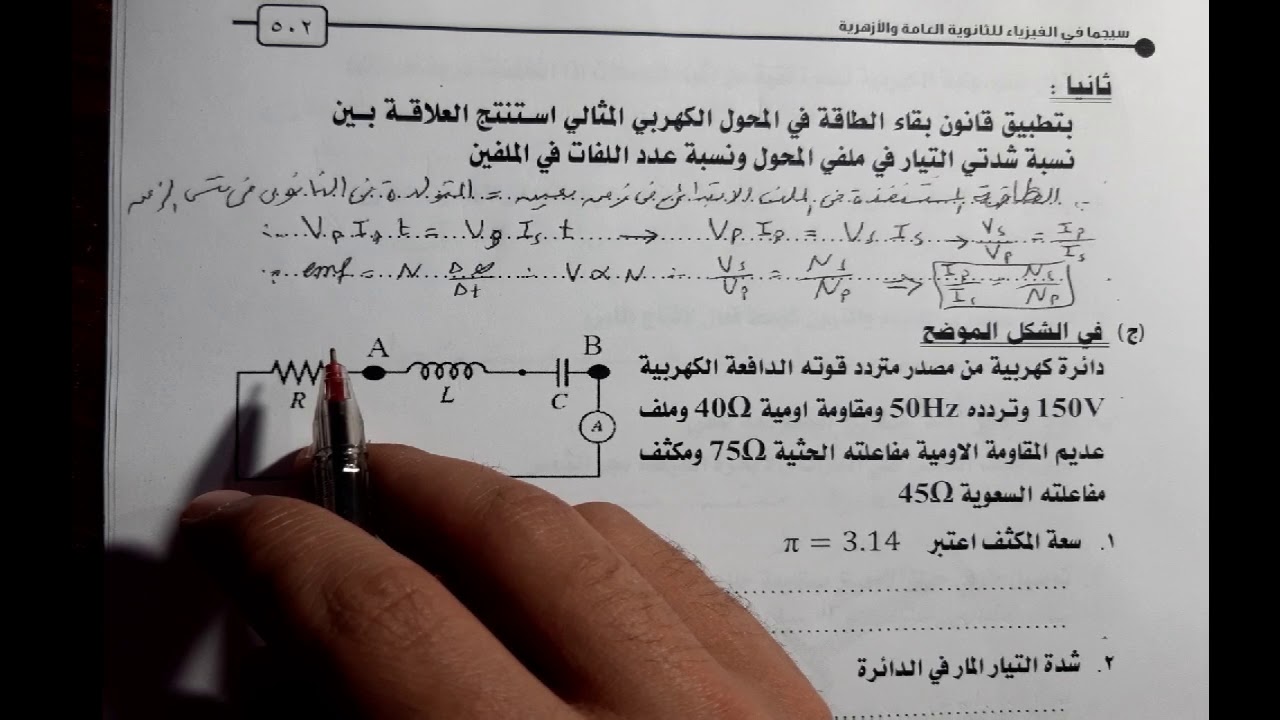 سيجما في الفيزياء للثانوية العامة والأزهرية
٥٠٢
ثانيا :
بتطبيق قانون بقاء الطاقة في المحول الكهربي المثالي استنتج العلاقة بين
نسبة شدتي التيار في ملفي المحول ونسبة عدد اللفات في الملفين
∵ الطاقة المستنفذة فى الملف الابتدائى فى زمن معين = المتولدة فى الثانوى فى نفس الزمن
∴ Vp Ip t = Vs Is t → Vp Ip = Vs Is → Vs/Vp = Ip/Is
∵ emf = N Δø/Δt ∴ V ∝ N ∴ Vs/Vp = Ns/Np ⇒ Ip/Is = Ns/Np
(ج) في الشكل الموضح
دائرة كهربية من مصدر متردد قوته الدافعة الكهربية
150V وتردده 50Hz ومقاومة اومية 40Ω وملف
عديم المقاومة الاومية مفاعلته الحثية 75Ω ومكثف
مفاعلته السعوية 45Ω
A
B
R
L
C
A
١. سعة المكثف اعتبر π = 3.14
٢. شدة التيار المار في الدائرة